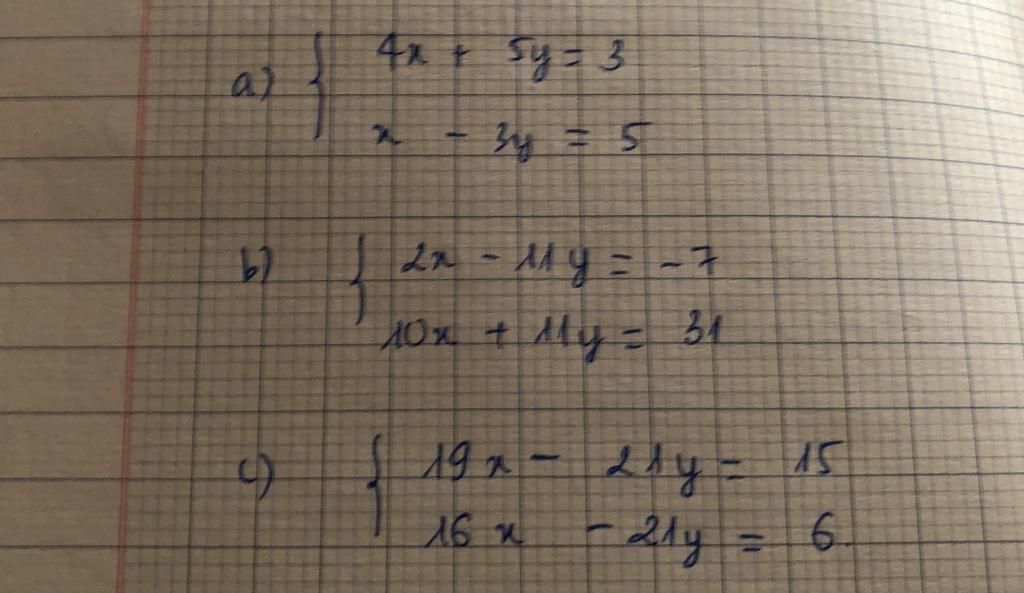 a) { 4x + 5y = 3
x - 3y = 5
b) { 2x - 11y = -7
10x + 11y = 31
c) { 19x - 21y = 15
16x - 21y = 6